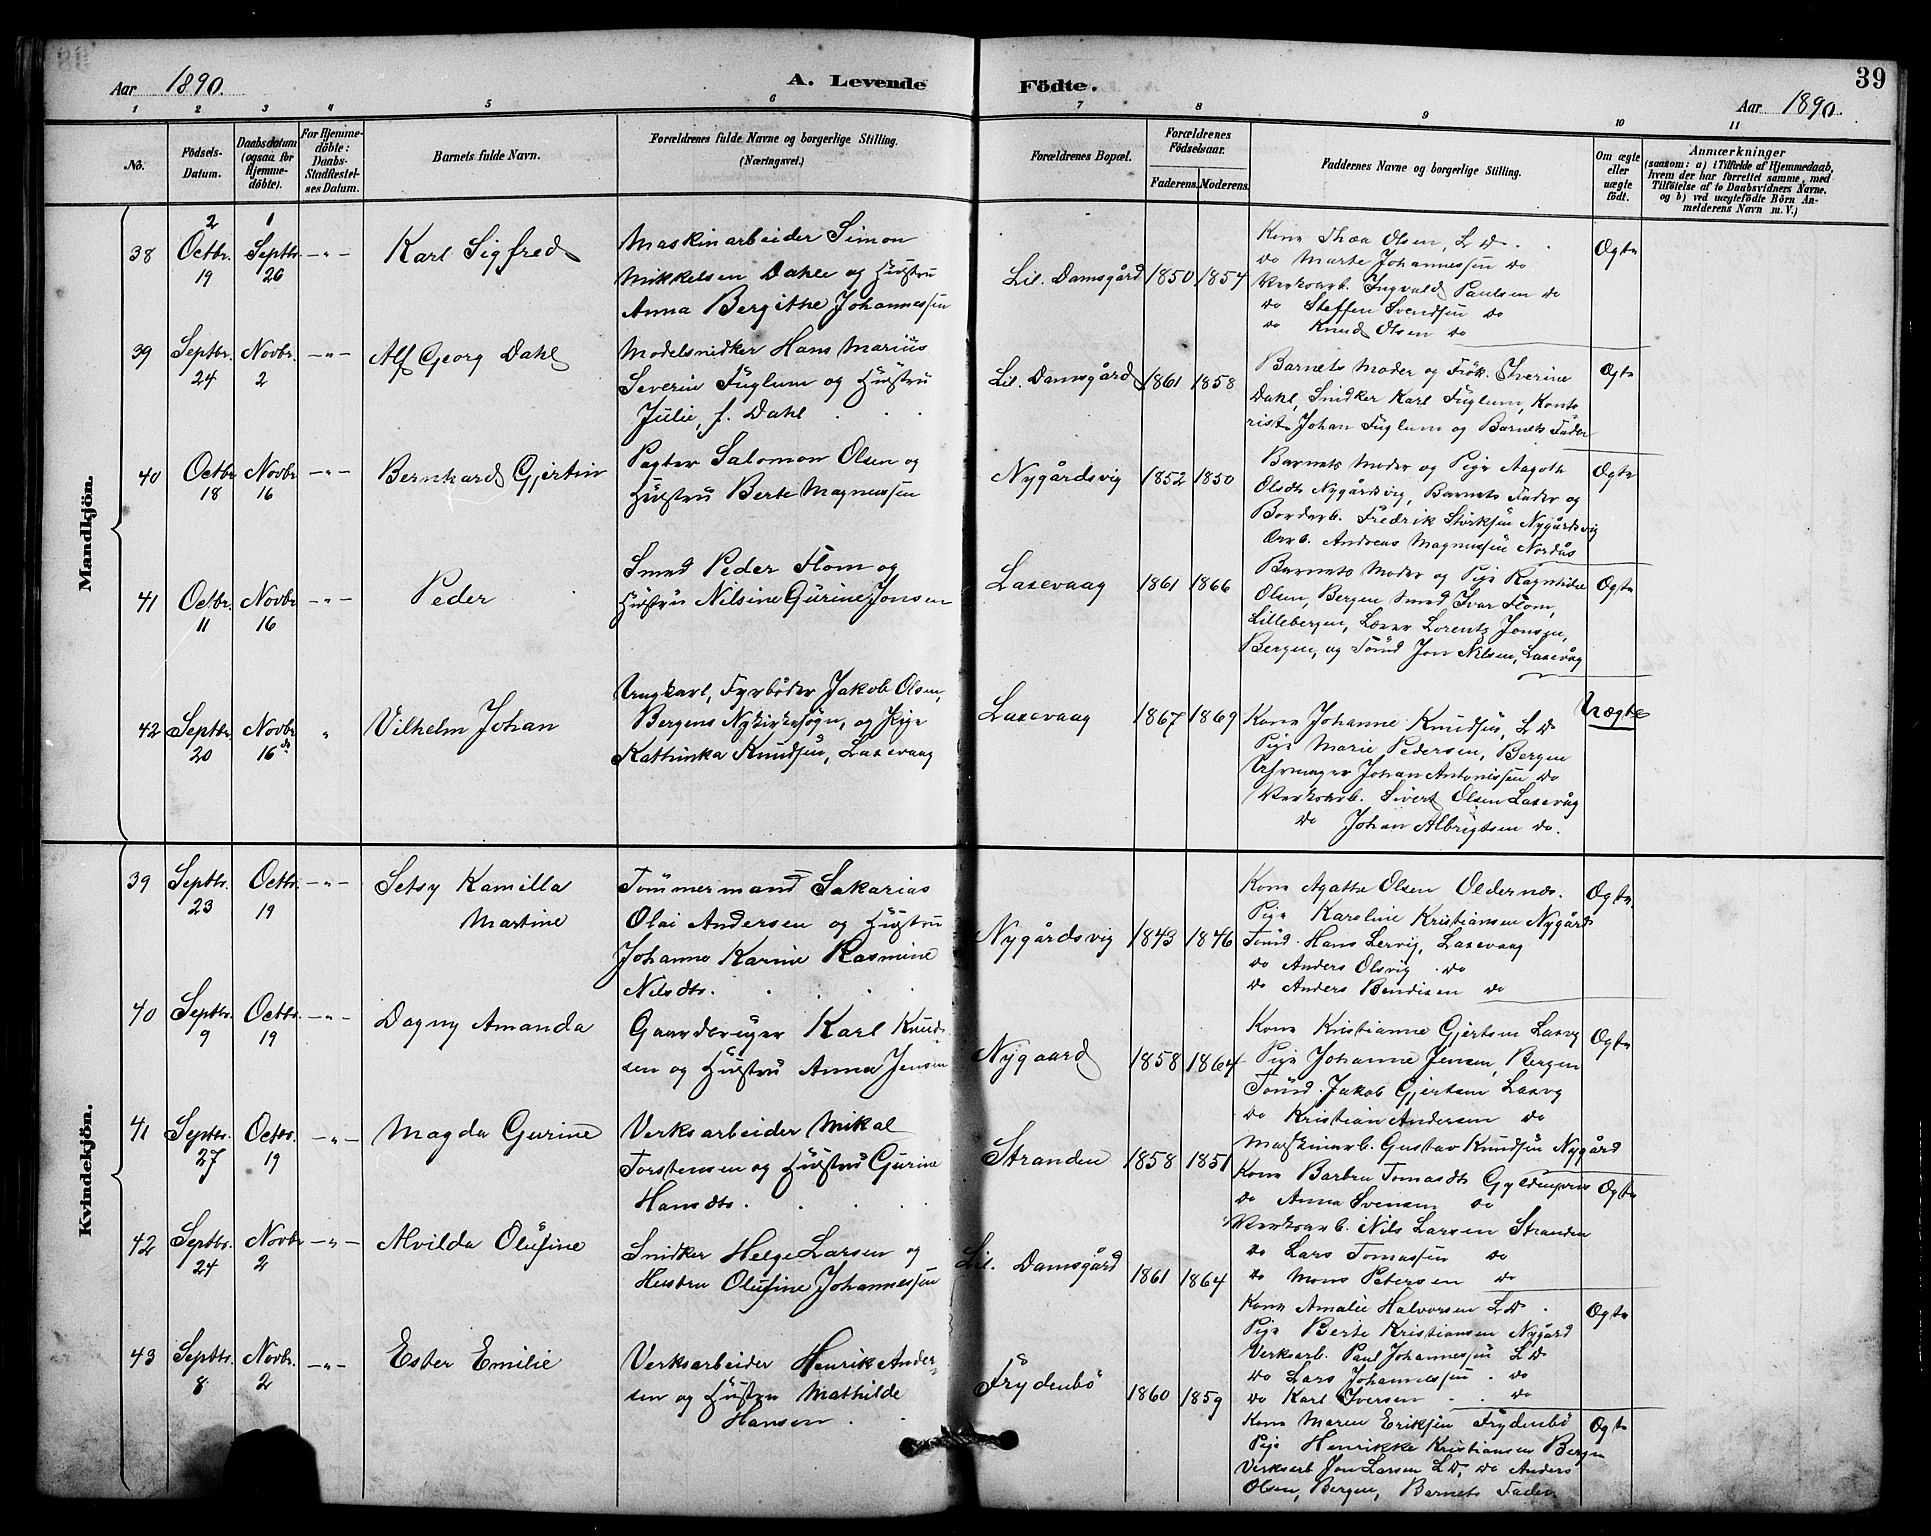 39
Aar 1890. A. Levende Födte. Aar 1890.
1 2 3 4 5 6 7 8 9 10 11
No.
Födsels-Datum.
Daabsdatum (ogsaa for Hjemmedöbte).
For Hjemmedöbte: Daabs-Stadfæstelses Datum.
Barnets fulde Navn.
Forældrenes fulde Navne og borgerlige Stilling.
(Næringsvei.)
Forældrenes Bopæl.
Forældrenes Födselsaar.
Faderens. Moderens.
Faddernes Navne og borgerlige Stilling.
Om ægte eller uægte födt.
Anmærkninger
(saasom: a) i Tilfælde af Hjemmedaab,
hvem der har forrettet samme, med
Tilföielse af to Daabsvidners Navne.
og b) ved uægtefödte Börn Anmelderens Navn m. V.)
Mandkjön.
2 1
38 Octbr. 19 Septbr. 26 -"- Karl Sigfred
Maskinarbeider Simon
Mikkelsen Dahle og Hustru
Anna Bergithe Johannessen
Lil. Damsgård 1850 1854
Kone Thea Olsen, L D.
do Marte Johannessen do
Verksarb. Ingvald Paulsen do
do Steffen Svendsen do
do Knud Olsen do
Ogte
39 Septbr. 24 Novbr. 2 -"- Alf Georg Dahl
Modelsnidker Hans Marius
Severin Fuglum og Hustru
Julie, f. Dahl
Lil. Damsgård 1861 1858
Barnets Moder og Frök. Iverine
Dahl, Snidker Karl Fuglum, Konto
rist Johan Fuglum og Barnets Fader
Ogte
40 Octbr 18 Novbr. 16 -"- Bernhard Gjertin
Pagter Salomon Olsen og
Hustru Berte Magnessen
Nygårdsvig 1852 1850
Barnets Moder og Pige Aagoth
Olsdt. Nygårdsvig, Barnets Fader og
Bordarb. Fredrik Störksen Nygårdsvig
Arb. Andreas Magnussen Nordås
Ogte
41 Octbr. 11 Novbr 16 -"- Peder
Smed Peder Flom og
Hustru Nilsine Gurine Jonsen
Laxevaag 1861 1866
Barnets Moder og Pige Ragnhilde
Olsen, Bergen Smed Ivar Flom,
Lillebergen, Lærer Lorentz Jonsen,
Bergen, og Tönd Jon Nilsen, Laxevåg
Ogte
42 Septbr. 20 Novbr 16 " Vilhelm Johan
Ungkarl, Fyrböder Jakob Olsen,
Bergens Nykirkesogn, og Pige
Kathinka Knudsen, Laxevaag
Laxevaag 1867 1869
Kone Johanne Knudsen, L D
Pige Marie Pedersen, Bergen
Uhrmager Johan Antonissen do
Verksarb. Sivert Olsen Laxevåg
do Johan Albrigtsen do.
Uægte
Kvindekjön.
39 Septbr. 23 Octbr. 19 -"- Setsy Kamilla
Martine
Tömmermand Sakarias
Olai Andersen og Hustru
Johanne Karine Rasmine
Nilsdtr.
Nygårdsvig 1843 1846
Kone Agathe Olsen Oldernæs.
Pige Karoline Kristiansen Nygård
Tömd. Hans Lervig, Laxevaag
do Anders Olsvig do
do Anders Bendixen do
Ogte.
40 Septbr. 9 Octbr. 19 -"- Dagny Amanda
Gaardbruger Karl Knud-
sen og Hustru Anna Jensen
Nygaard 1858 1864
Kone Kristianne Gjertsen Laxvg
Pige Johanne Jensen, Bergen
Tömd. Jakob Gjertsen Laxvg
do Kristian Andersen do
Maskinarb. Gustav Knudsen Nygård
Ogte
41 Septbr. 27 Octbr. 19 -"- Magda Gurine
Verksarbeider Mikal
Torstensen og Hustru Gurine
Hansdtr.
Stranden 1858 1851
Kone Barbra Tomasdtr
do Anna Svensen do
Verksarb. Nils Larsen Stranden
do Lars Tomassen do
do Mons Petersen do
Ogte
42 Septbr. 24 Novbr 2 -"- Alvilda Olufine
Snidker Helge Larsen og
Hustru Olufine Johannessen
Lil. Damsgård 1861 1864
Kone Amalie Halvorsen L D.
Pige Berte Kristiansen Nygård
Verksarb. Paul Johannessen L D
do Lars Johannessen do
do Karl Iversen do
Ogte
43 Septbr. 8 Novbr. 2 -"- Ester Emilie
Verksarbeider Henrik Ander-
sen og Hustru Mathilde
Hansen
Frydenbö 1860 1859
Kone Maren Eriksen Frydenbö
Pige Henrikke Kristiansen Bergen
Verksarb Jon Larsen L D, do Anders
Olsen, Bergen, Barnets Fader.
Ogte